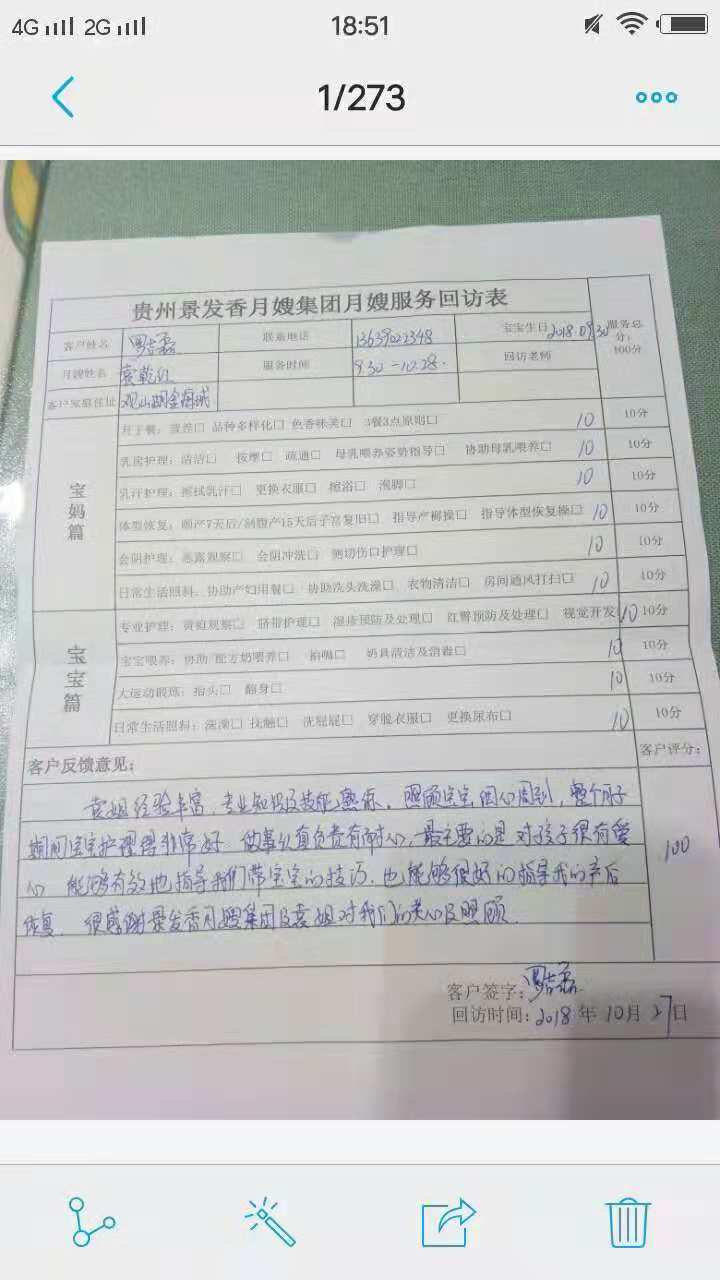 4G 2G 18:51
1/273
贵州景发香月嫂集团月嫂服务回访表
客户姓名 罗吉磊 联系电话 13639022348 宝宝生日 2018.09.30 服务总分:100分
月嫂姓名 袁乾红 服务时间 9.30-10.28. 回访老师
客户家庭住址 观山湖金海城
宝妈篇
月子餐:营养□ 品种多样化□ 色香味美□ 3餐3点原则□ 10 10分
乳房护理:清洁□ 按摩□ 疏通□ 母乳喂养姿势指导□ 协助母乳喂养□ 10 10分
乳汗护理:擦拭乳汗□ 更换衣服□ 擦浴□ 泡脚□ 10 10分
体型恢复:顺产7天后/剖腹产15天后子宫复旧□ 指导产褥操□ 指导体型恢复操□ 10 10分
会阴护理:恶露观察□ 会阴冲洗□ 侧切伤口护理□ 10 10分
日常生活照料:协助产妇用餐□ 协助洗头洗澡□ 衣物清洁□ 房间通风打扫□ 10 10分
宝宝篇
专业护理:黄疸观察□ 脐带护理□ 湿疹预防及处理□ 红臀预防及处理□ 视觉开发 10 10分
宝宝喂养:协助 配方奶喂养□ 拍嗝□ 奶具清洁及消毒□ 10 10分
大运动锻炼:抬头□ 翻身□ 10 10分
日常生活照料:洗澡□ 抚触□ 洗屁屁□ 穿脱衣服□ 更换尿布□ 10 10分
客户反馈意见: 客户评分:
袁姐经验丰富,专业知识及技能熟练,照顾宝宝细心周到,整个月子
期间宝宝护理得非常好 做事认真负责有耐心,最主要的是对孩子很有爱
心 能够有效地指导我们带宝宝的技巧,也能够很好的指导我的产后
恢复. 很感谢景发香月嫂集团及袁姐对我们的关心及照顾.
100
客户签字:罗吉磊
回访时间:2018 年 10月 27日